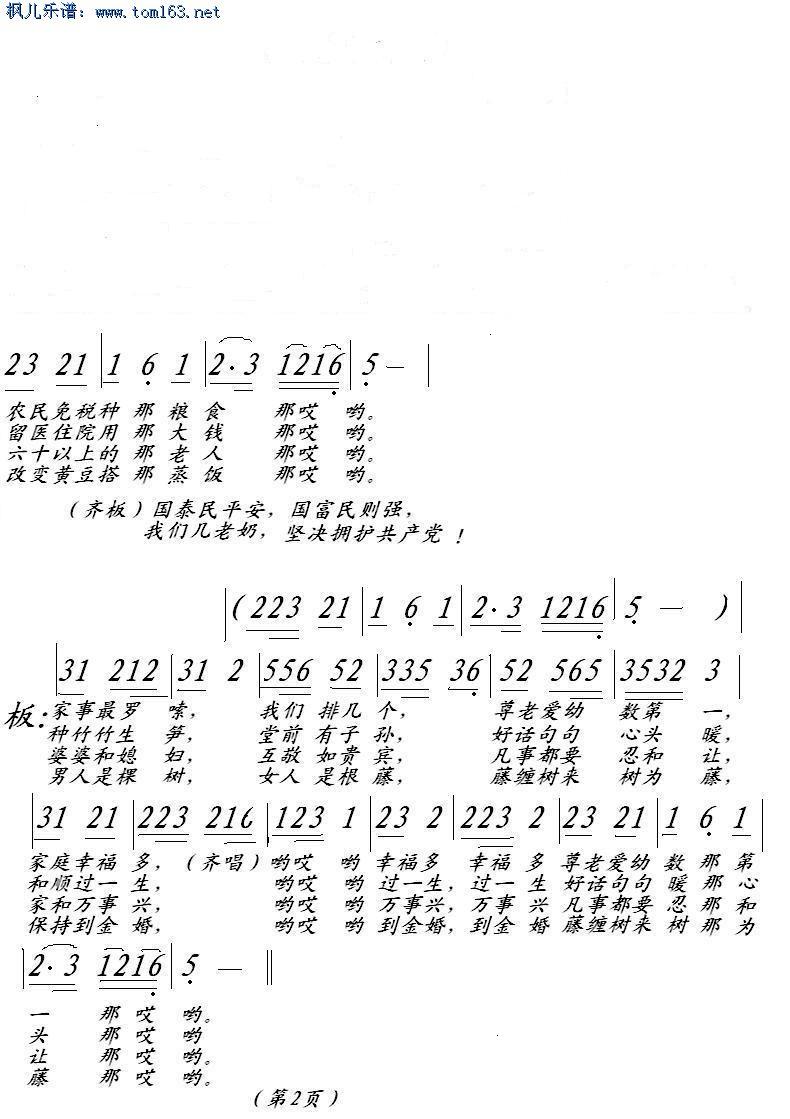 枫儿乐谱：www.tom163.net
23 21 | 1 6 1 | 2·3 1216 | 5 — |
农民免税种 那 粮 食 那哎 哟。
留医住院用 那 大 钱 那哎 哟。
六十以上的 那 老 人 那哎 哟。
改变黄豆搭 那 蒸 饭 那哎 哟。
（齐板）国泰民平安，国富民则强，
我们几老奶，坚决拥护共产党！
| (223 21 | 1 6 1 | 2·3 1216 | 5 — ) |
| 31 212 | 31 2 | 556 52 | 335 36 | 52 565 | 3532 3 |
板：家事最罗 嗦， 我们 排几 个， 尊老爱幼 数第 一，
种竹竹生 笋， 堂前 有子 孙， 好话句句 心头 暖，
婆婆和媳 妇， 互敬 如贵 宾， 凡事都要 忍和 让，
男人是棵 树， 女人 是根 藤， 藤缠树来 树为 藤，
| 31 21 | 223 216 | 123 1 | 23 2 | 223 2 | 23 21 | 1 6 1 |
家庭幸福 多，（齐唱）哟哎 哟 幸福多 幸福 多 尊老爱幼 数 那 第
和顺过一 生， 哟哎 哟 过一生，过一 生 好话句句 暖 那 心
家和万事 兴， 哟哎 哟 万事兴，万事 兴 凡事都要 忍 那 和
保持到金 婚， 哟哎 哟 到金婚，到金 婚 藤缠树来 树 那 为
| 2·3 1216 | 5 — ||
一 那 哎 哟。
头 那 哎 哟
让 那 哎 哟。
藤 那 哎 哟。
（第2页）